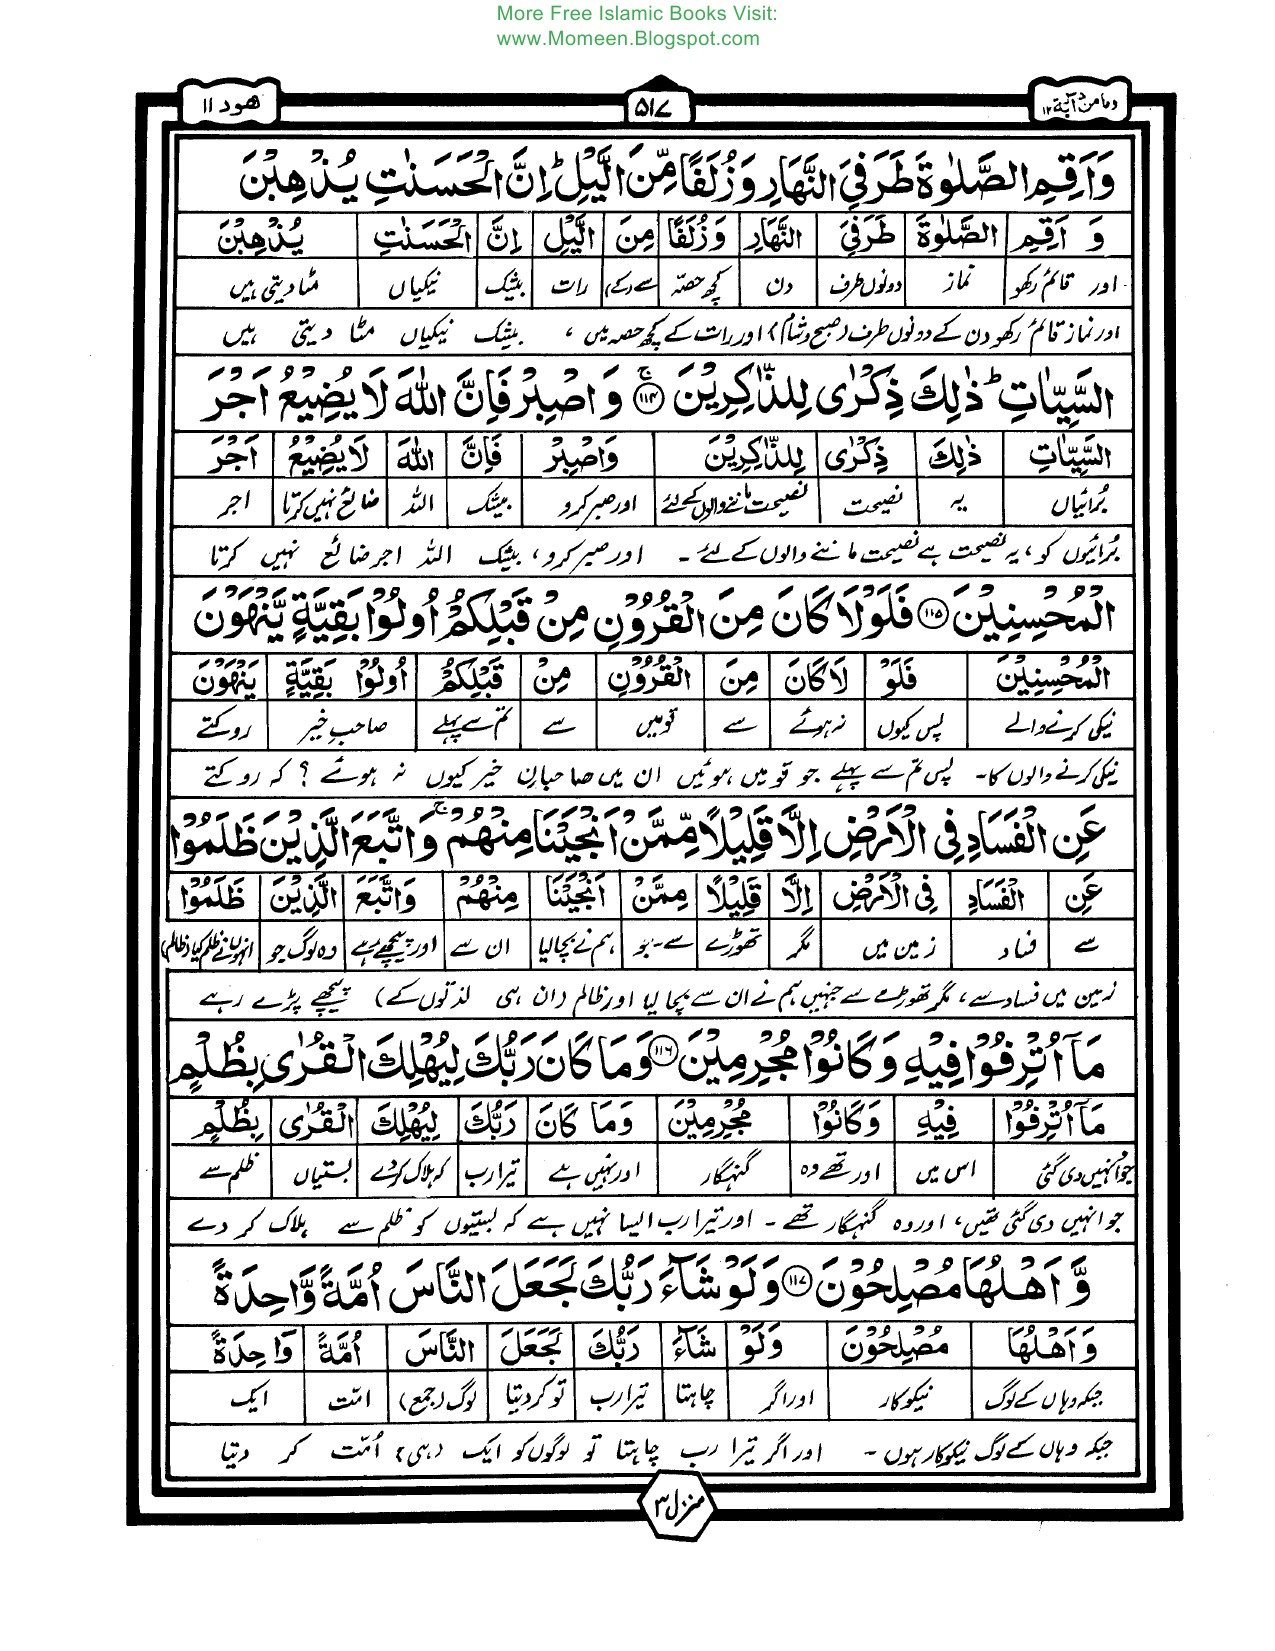 More Free Islamic Books Visit:
www.Momeen.Blogspot.com
ومامن دآبة ١٢
٥١٧
هود ١١
وَاَقِمِ الصَّلٰوةَ طَرَفَیِ النَّهَارِ وَ زُلَفًا مِّنَ الَّیْلِ ؕ اِنَّ الْحَسَنٰتِ یُذْهِبْنَ
وَ اَقِمِ الصَّلٰوةَ طَرَفَیِ النَّهَارِ وَ زُلَفًا مِنَ الَّیْلِ اِنَّ الْحَسَنٰتِ یُذْهِبْنَ
اور قائم رکھو نماز دونوں طرف دن کچھ حصّہ سے (کے) رات بیشک نیکیاں مٹا دیتی ہیں
اور نماز قائم رکھو دن کے دونوں طرف (صبح و شام) اور رات کے کچھ حصہ میں ، بیشک نیکیاں مٹا دیتی ہیں
السَّیِّاٰتِ ؕ ذٰلِكَ ذِكْرٰی لِلذّٰكِرِیْنَ ۚ ﴿١١٤﴾ وَ اصْبِرْ فَاِنَّ اللّٰهَ لَا یُضِیْعُ اَجْرَ
السَّیِّاٰتِ ذٰلِكَ ذِكْرٰی لِلذّٰكِرِیْنَ وَاصْبِرْ فَاِنَّ اللّٰهَ لَا یُضِیْعُ اَجْرَ
بُرائیاں یہ نصیحت نصیحت ماننے والوں کے لئے اور صبر کرو بیشک اللہ ضائع نہیں کرتا اجر
بُرائیوں کو ، یہ نصیحت ہے نصیحت ماننے والوں کے لئے ۔ اور صبر کرو ، بیشک اللہ اجر ضائع نہیں کرتا
الْمُحْسِنِیْنَ ﴿١١٥﴾ فَلَوْ لَا كَانَ مِنَ الْقُرُوْنِ مِنْ قَبْلِكُمْ اُولُوْا بَقِیَّةٍ یَّنْهَوْنَ
الْمُحْسِنِیْنَ فَلَوْ لَا كَانَ مِنَ الْقُرُوْنِ مِنْ قَبْلِكُمْ اُولُوْا بَقِیَّةٍ یَنْهَوْنَ
نیکی کرنے والے پس کیوں نہ ہوئے سے قومیں سے تم سے پہلے صاحبِ خیر روکتے
نیکی کرنے والوں کا۔ پس تم سے پہلے جو قومیں ہوئیں ان میں صاحبانِ خیر کیوں نہ ہوئے ؟ کہ روکتے
عَنِ الْفَسَادِ فِی الْاَرْضِ اِلَّا قَلِیْلًا مِّمَّنْ اَنْجَیْنَا مِنْهُمْ ۚ وَ اتَّبَعَ الَّذِیْنَ ظَلَمُوْا
عَنِ الْفَسَادِ فِی الْاَرْضِ اِلَّا قَلِیْلًا مِمَّنْ اَنْجَیْنَا مِنْهُمْ وَاتَّبَعَ الَّذِیْنَ ظَلَمُوْا
سے فساد زمین میں مگر تھوڑے سے ۔ جو ہم نے بچا لیا ان سے اور پیچھے رہے وہ لوگ جو انہوں نے ظلم کیا (ظالم)
زمین میں فساد سے ، مگر تھوڑے سے جنہیں ہم نے ان سے بچا لیا اور ظالم (ان ہی لذتوں کے) پیچھے پڑے رہے
مَاۤ اُتْرِفُوْا فِیْهِ وَ كَانُوْا مُجْرِمِیْنَ ﴿١١٦﴾ وَ مَا كَانَ رَبُّكَ لِیُهْلِكَ الْقُرٰی بِظُلْمٍ
مَاۤ اُتْرِفُوْا فِیْهِ وَكَانُوْا مُجْرِمِیْنَ وَمَا كَانَ رَبُّكَ لِیُهْلِكَ الْقُرٰی بِظُلْمٍ
جو انہیں دی گئی اس میں اور تھے وہ گنہگار اور نہیں ہے تیرا رب کہ ہلاک کر دے بستیاں ظلم سے
جو انہیں دی گئی تھیں ، اور وہ گنہگار تھے ۔ اور تیرا رب ایسا نہیں ہے کہ بستیوں کو ظلم سے ہلاک کر دے
وَّ اَهْلُهَا مُصْلِحُوْنَ ﴿١١٧﴾ وَ لَوْ شَآءَ رَبُّكَ لَجَعَلَ النَّاسَ اُمَّةً وَّاحِدَةً
وَ اَهْلُهَا مُصْلِحُوْنَ وَلَوْ شَآءَ رَبُّكَ لَجَعَلَ النَّاسَ اُمَّةً وَاحِدَةً
جبکہ وہاں کے لوگ نیکو کار اور اگر چاہتا تیرا رب تو کر دیتا لوگ (جمع) امّت ایک
جبکہ وہاں کے لوگ نیکو کار ہوں ۔ اور اگر تیرا رب چاہتا تو لوگوں کو ایک (ہی) اُمّت کر دیتا
منزل ٣